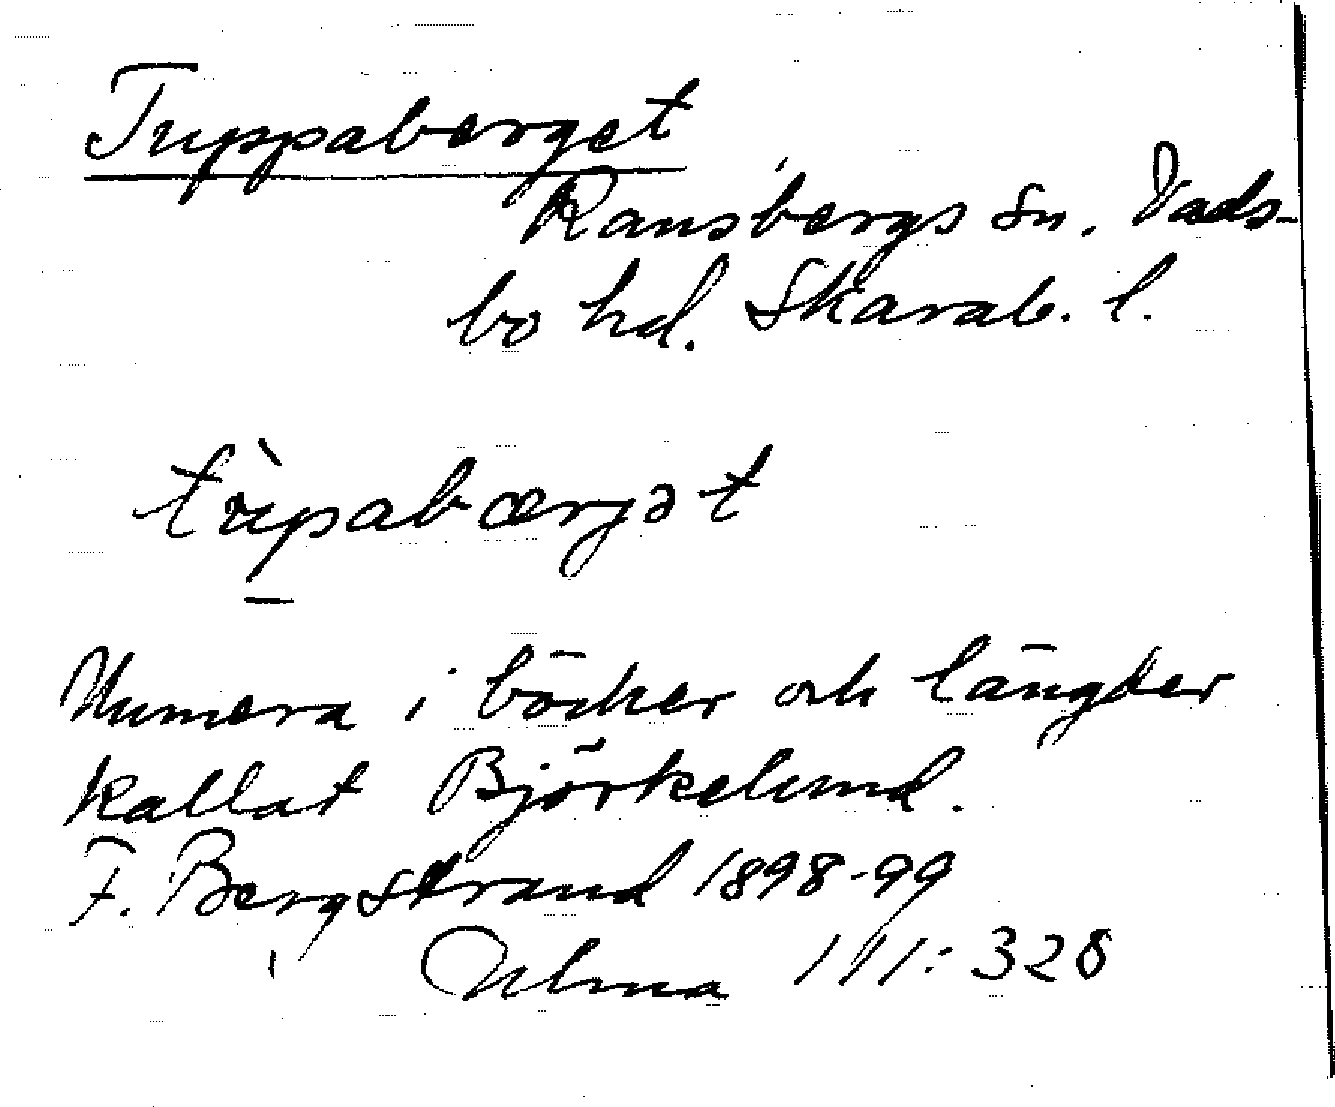 Tuppaberget
Ransbergs sn. Vads-
bo hd. Skarab. l.
tùp̠abærjət
Numera i böcker och längder
kallat Björkelund.
F. Bergstrand 1898-99
Ulma 111:328